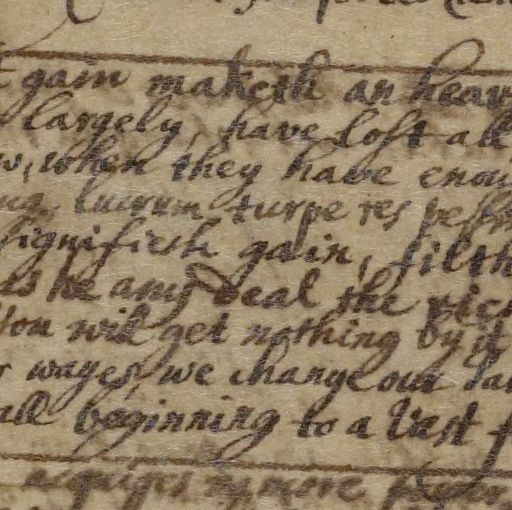 gain maketh an heav
largely, have lost all
w, when they have enou
lucrum turpe res pess
signifieth gain, filth
he any deal the rich
You will get nothing by it
wayes, we change our
all beginning to a Vast f
more